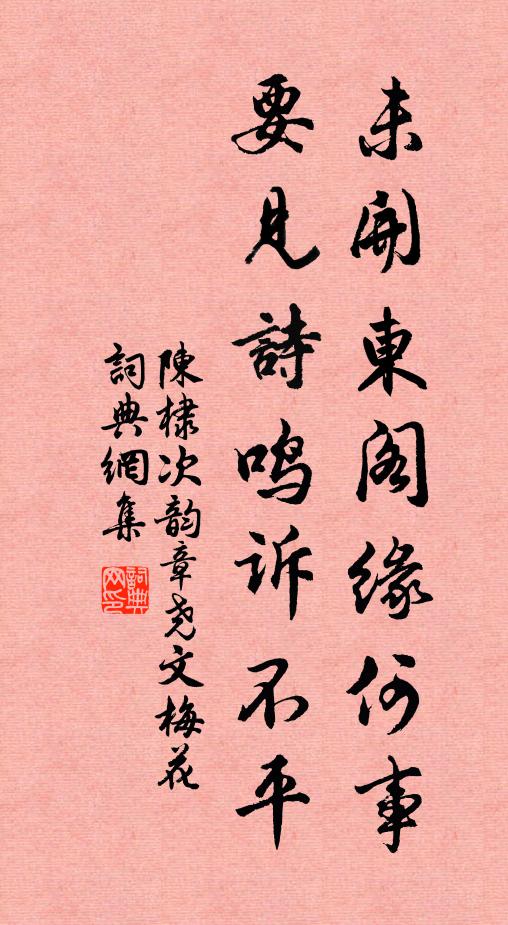 未開東阁緣何事
要見詩鸣訴不平
陳棣次韵章尧文梅花
詞典網集
詞典网印